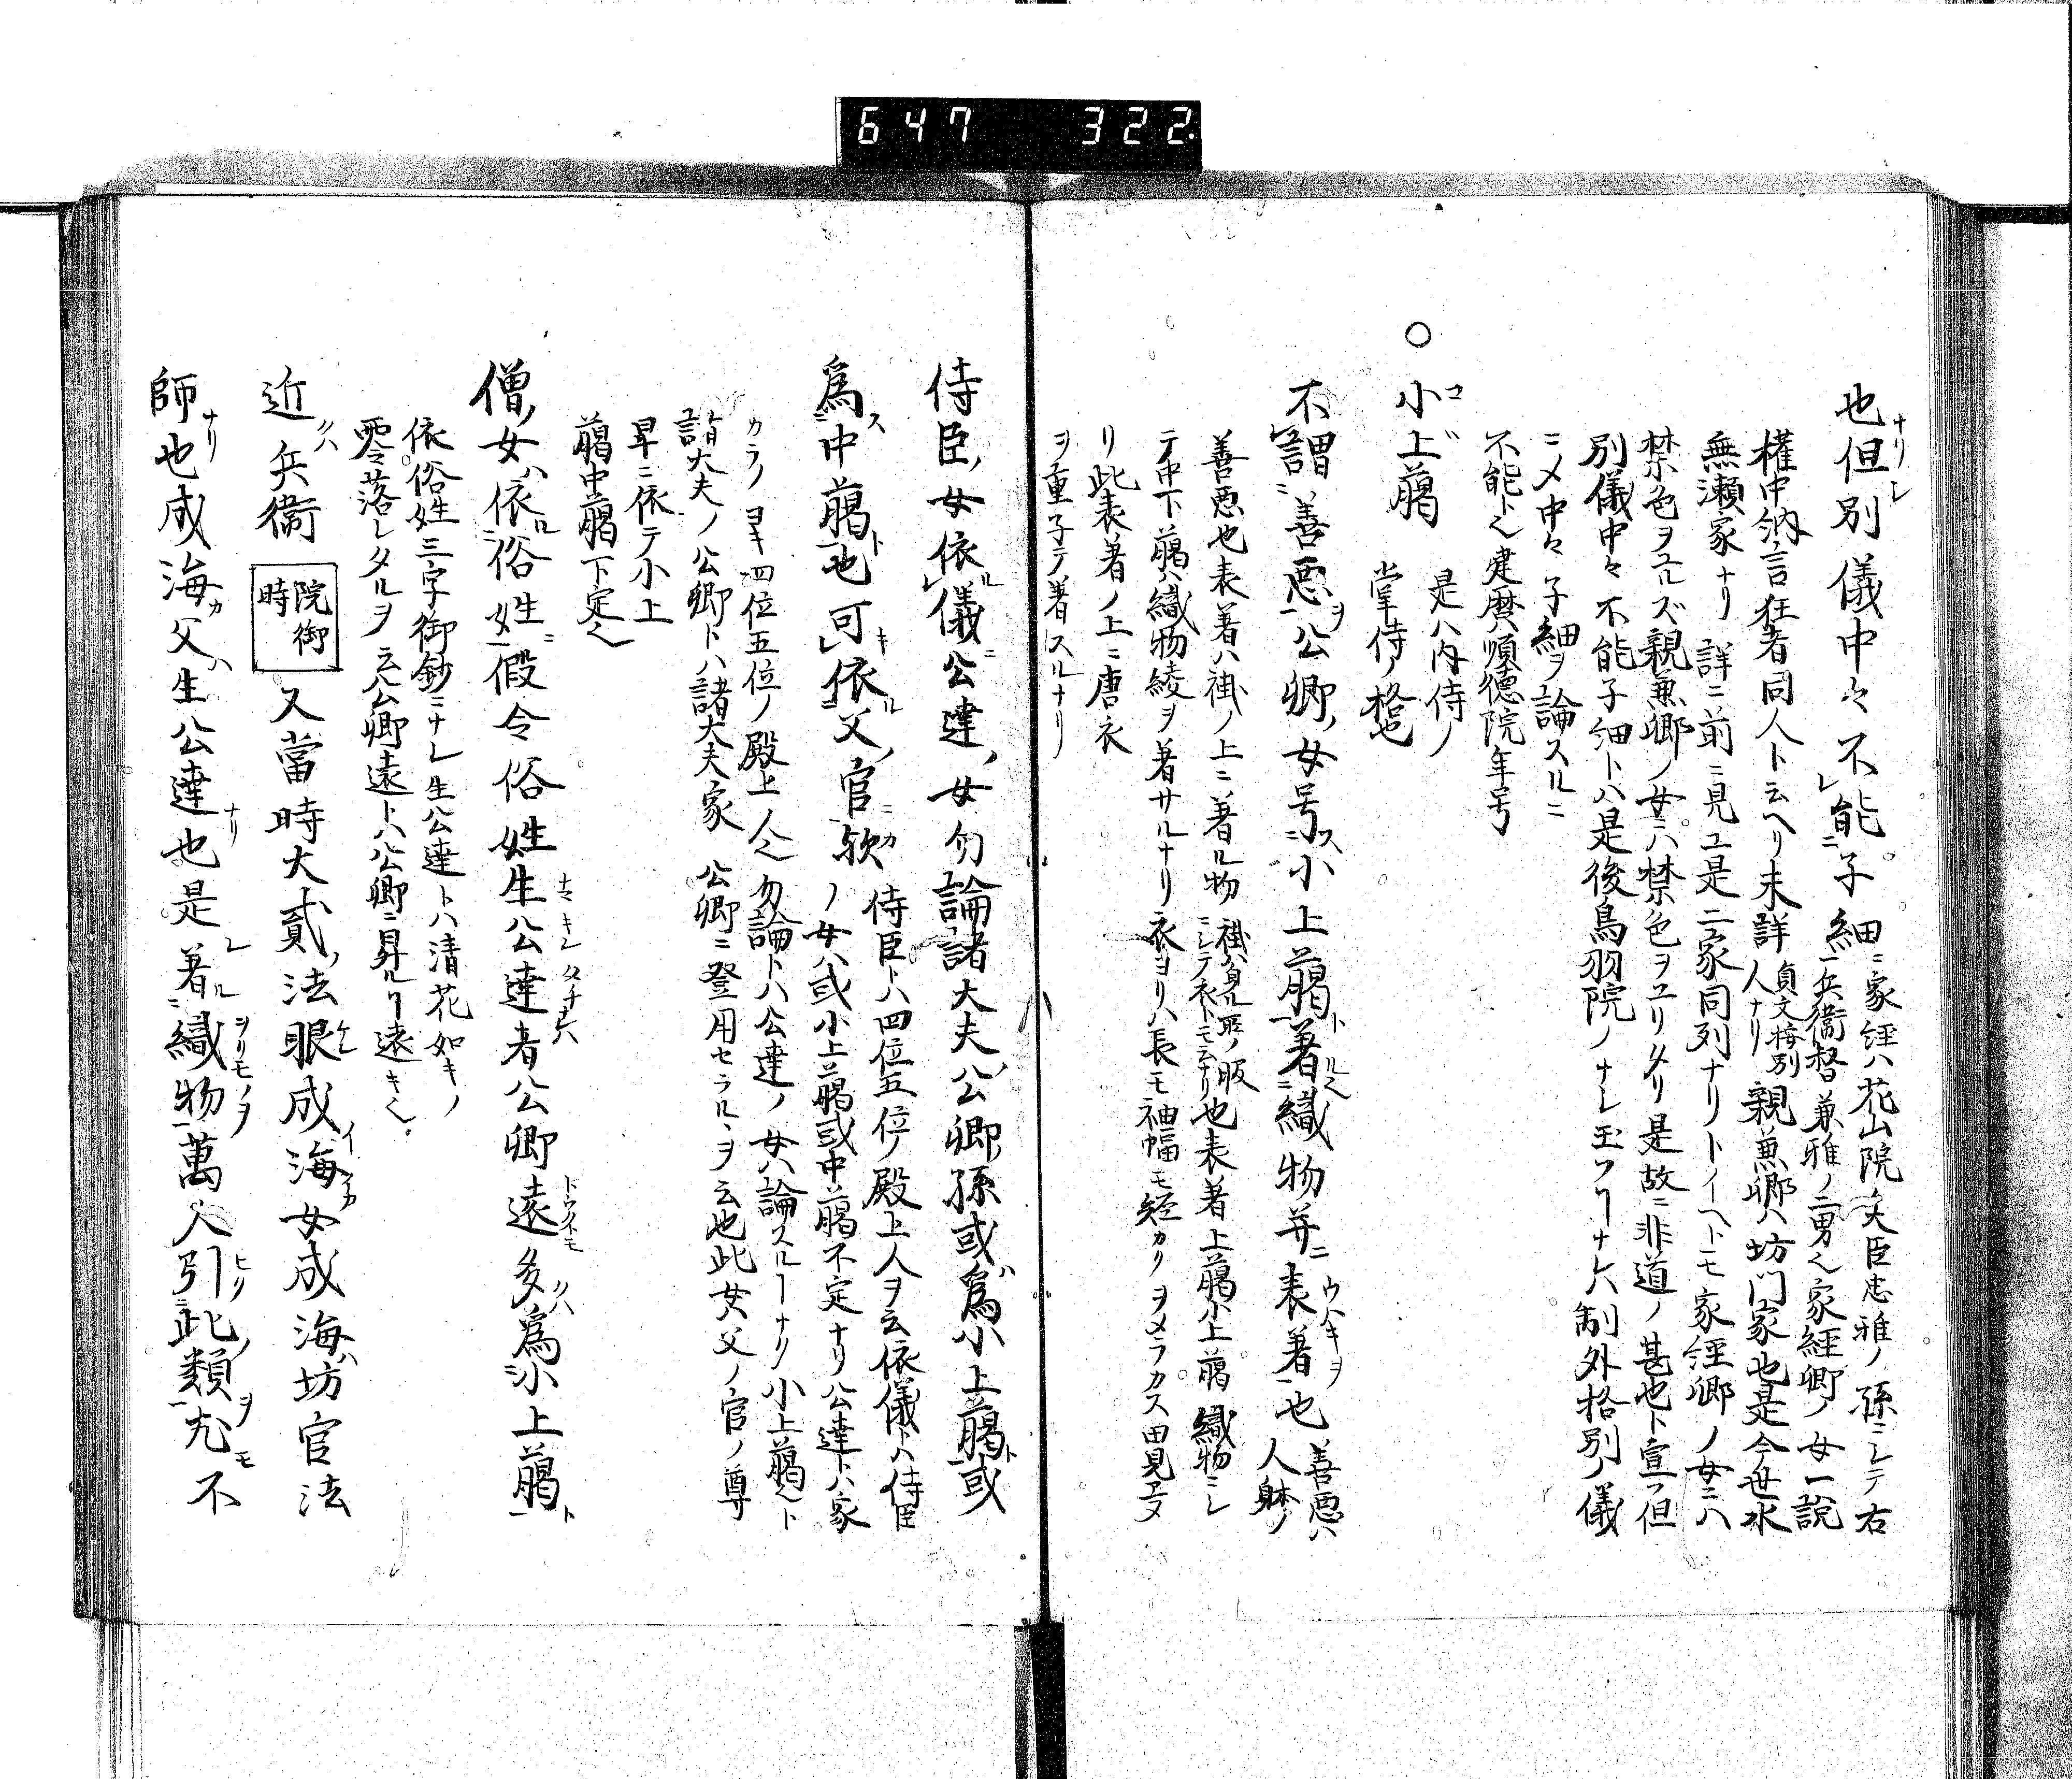 647 322
也但別儀中々不能子細ニ家経ハ花山院大臣忠雅ノ孫ニシテ右
兵衞督兼雅ノ二男也家経卿ノ女一説
權中納言狂者同人ト云ヘリ未詳 貞丈按別人ナリ 親兼卿ハ坊門家也是今世水
無瀬家ナリ詳ニ前ニ見ユ是二家同列ナリトイヘトモ家経卿ノ女ニハ
禁色ヲユルズ親兼卿ノ女ニハ禁色ヲユリタリ是故ニ非道ノ甚也ト宣フ但
別儀中々不能子細トハ是後鳥羽院ノナシ玉フヿナレハ制外格別ノ儀
ニメ中々子細ヲ論スルニ
不能ト也建暦ハ順德院年号
○小上﨟 是ハ内侍ノ
掌侍ノ格也
不謂善悪公卿ノ女号小上﨟著織物并ニ表著也 善悪ハ
人躰ノ
善悪也表著ハ褂ノ上ニ著ル物 褂ハ身ル所ノ服ニシテ衣トモ云ナリ 也表著上﨟小上﨟織物ニシ
テ中下﨟ハ織物綾ヲ著サルナリ衣ヨリハ長モ袖幅モ経カリヲメラカス由見エタ
リ此表著ノ上ニ唐衣
ヲ重子テ著スルナリ
侍臣ノ女依儀公達ノ女勿論諸大夫ノ公卿孫或ハ為小上﨟ト或
為中﨟也可依父ノ官欤 侍臣トハ四位五位ノ殿上人ヲ云依儀トハ侍臣
ノ女ハ或小上﨟或中﨟不定ナリ公達トハ家
カラノヨキ四位五位ノ殿上人也勿論トハ公達ノ女ハ論スルヿナリ小上﨟也ト
諸大夫ノ公卿トハ諸大夫家 公卿ニ登用セラルヽヲ云也此女父ノ官ノ尊
卑ニ依テ小上
﨟中﨟下定也
僧ノ女ハ依俗姓假令俗姓生公達者公卿遠多為小上﨟ト
依俗姓三字御鈔ニナシ生公達トハ清花如キノ
零落シタルヲ云公卿遠トハ公卿ニ昇ルヿ遠キ也
近兵衞 院御時 又當時大貳ノ法眼成海女成海ハ坊官法
師也成海カ父ハ生公達也是著織物萬人引此ノ類ヲ尤モ不